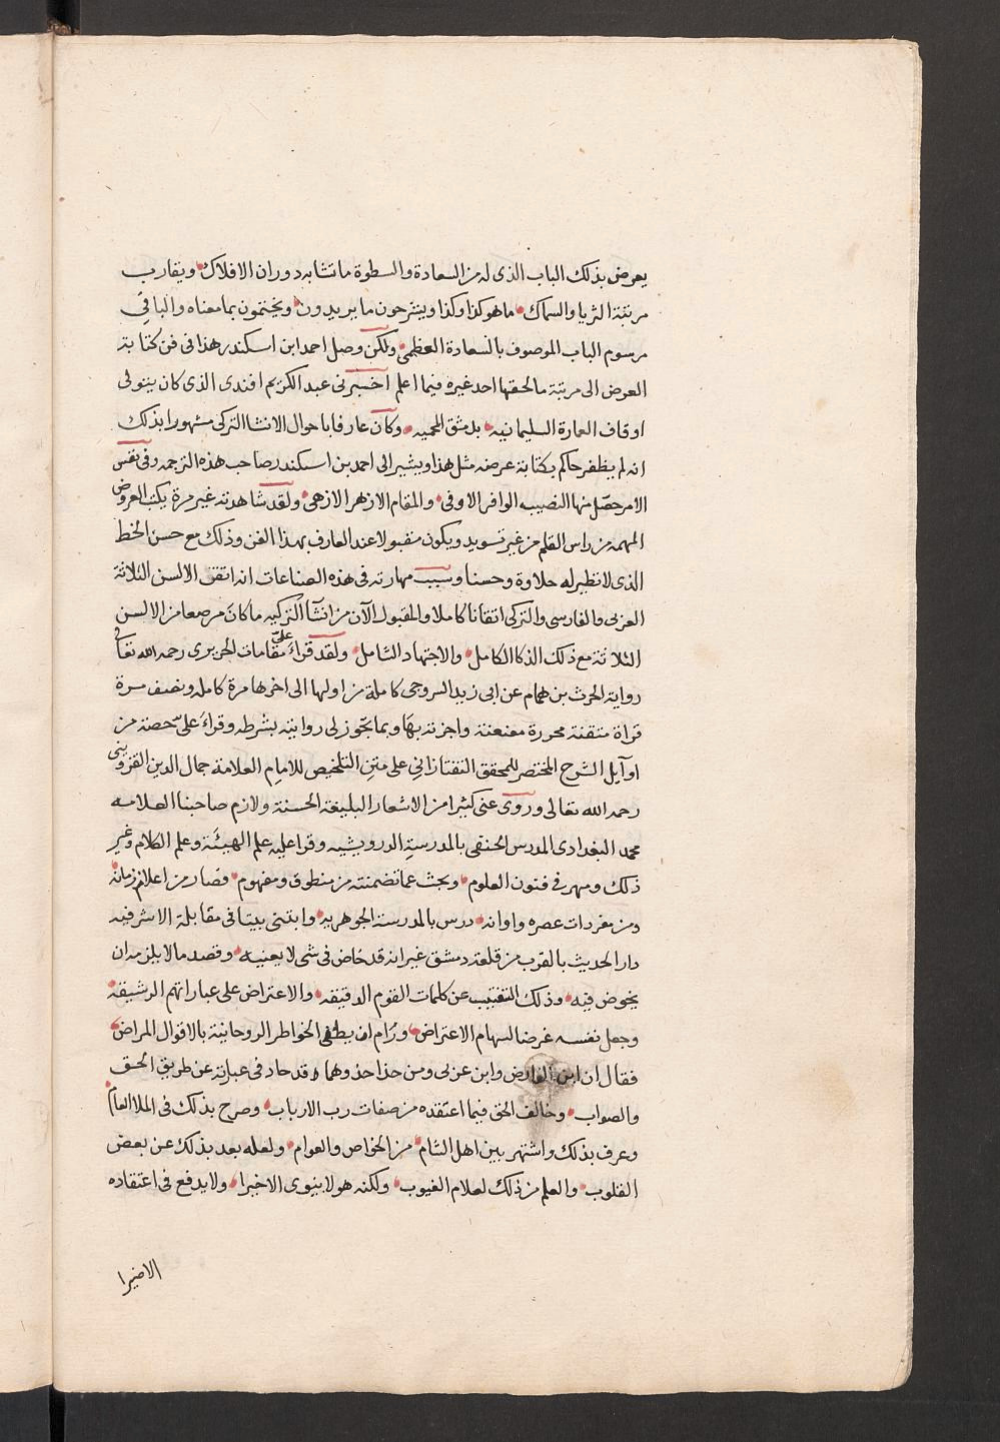 يعرض بذلك الباب الذى له من السعادة والسطوة ما تشابه دوران الافلاك ويقارب
مرتبة الثريا والسماك ما هو كذا وكذا ويشرحون ما يريدون ويختمون بما معناه والباقى
مرسوم الباب الموصوف بالسعادة العظمى ولكن وصل احمد ابن اسكندر هذا فى فن كتابة
العرض الى مرتبة ما لحقها احد غيره فيما اعلم اخبرنى عبد الكريم افندى الذى كان يتولى
اوقاف العمارة السليمانيه بدمشق المحميه وكان عارفا باحوال الانشا التركى مشهورا بذلك
انه لم يظفر حاكم بكتابة عرضه مثل هذا ويشير الى احمد بن اسكندر صاحب هذه الترجمه وفى نفس
الامر حصل منها النصيب الوافر الاوفى والمقام الازهر الازهى ولقد شاهدته غير مرة يكتب العروض
المهمه من راس القلم من غير تسويد ويكون مقبولا عند العارف بهذا الفن وذلك مع حسن الخط
الذى لا نظير له حلاوة وحسنا وسبب مهارته فى هذه الصناعات انه اتقن الالسن الثلاثة
العربى والفارسى والتركى اتقانا كاملا والمقبول الآن من انشآ التركيه ما كان مرصعا من الالسن
الثلاثة مع ذلك الذكا الكامل والاجتهاد الشامل ولقد قراء علىّ مقامات الحريرى رحمه الله تعالى
رواية الحرث بن همام عن ابى زيد السروجى كاملة من اولها الى اخرها مرة كامله ونصف مرة
قراة متقنة محررة معنعنة واجزته بها وبما يجوز لى روايته بشرطه وقراء على حصة من
اوآيل الشرح المختصر للمحقق التفتازانى على متن التلخيص للامام العلامة جمال الدين القزوينى
رحمه الله تعالى وروى عنى كثيرا من الاشعار البليغة الحسنة ولازم صاحبنا العلامه
محمد البغدادى المدرس الحنفى بالمدرسة الدرويشيه وقرا عليه علم الهيئة وعلم الكلام وغير
ذلك ومهر فى فنون العلوم وبحث عما تضمنته من منطوق ومفهوم فصار من اعلام زمانه
ومن مفردات عصره واوانه درس بالمدرسة الجوهريه وابتنى بيتا فى مقابلة الاشرفيه
دار الحديث بالقرب من قلعة دمشق غير انه قد خاض فى شى لا يعنيه وقصد ما لا يلزمه ان
يخوض فيه وذلك التنقيب عن كلمات القوم الدقيقه والاعتراض على عباراتهم الرشيقة
وجعل نفسه غرضا لسهام الاعتراض ورام ان يطفى الخواطر الروحانية بالاقوال المراض
فقال ان ابن الفارض وابن عربى ومن حذا حذوهما قد حاد فى عبارته عن طريق الحق
والصواب وخالف الحق فيما اعتقده من صفات رب الارباب وصرح بذلك فى الملا العام
وعرف بذلك واشتهر بين اهل الشام من الخواص والعوام ولعله بعد بذلك عن بعض
القلوب والعلم من ذلك لعلام الغيوب ولكنه هو لا ينوى الا خيرا ولا يدفع فى اعتقاده
الا ضيرا